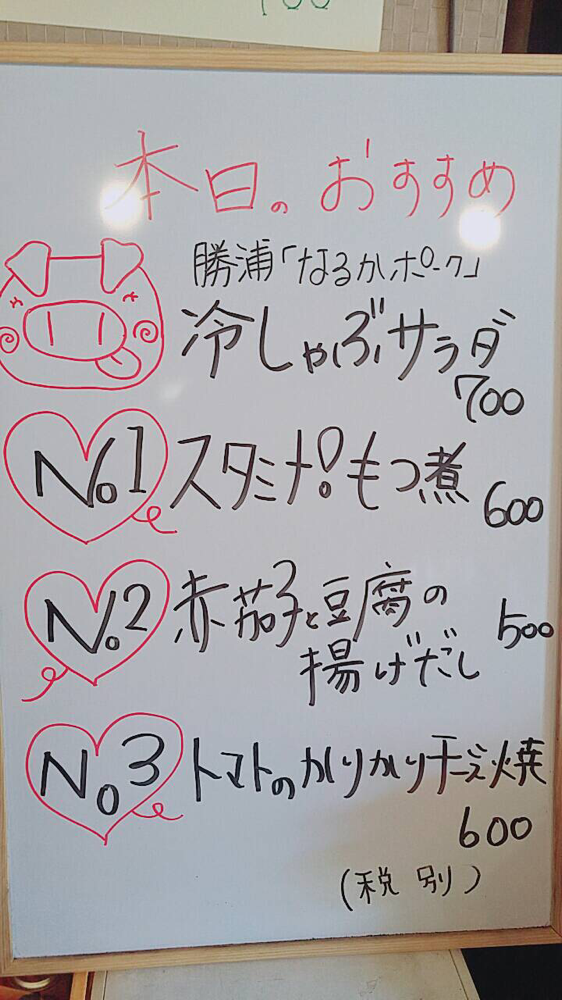 本日のおすすめ
勝浦「なるかポーク」
冷しゃぶサラダ
700
No.1 スタミナ!もつ煮
600
No.2 赤茄子と豆腐の
揚げだし
500
No.3 トマトのかりかりチーズ焼
600
(税別)